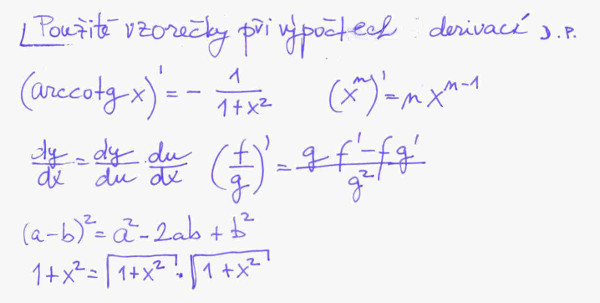 Použité vzorečky při výpočtech derivací J.P.
(arccotg x)' = - 1/(1+x²) (xⁿ)' = n xⁿ⁻¹
dy/dx = dy/du du/dx (f/g)' = (g f' - f g')/g²
(a-b)² = a² - 2ab + b²
1+x² = √(1+x²) · √(1+x²)